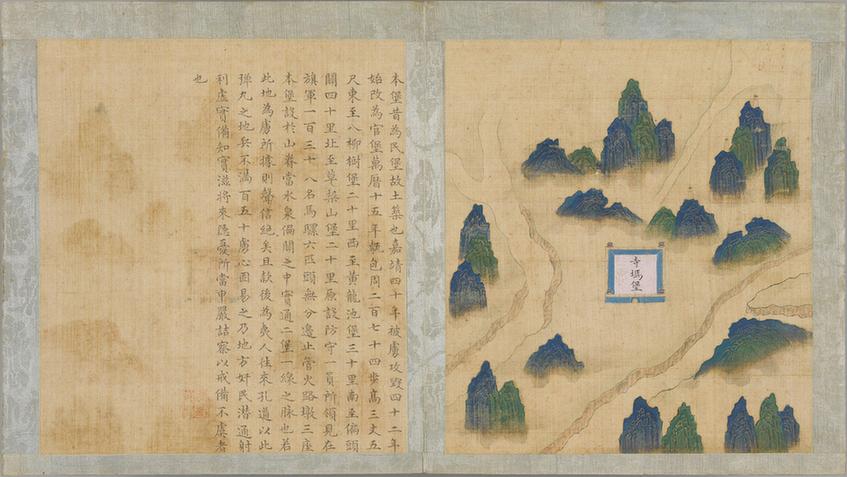 本堡昔為民堡故土築也嘉靖四十年被虜攻毀四十二年
始改為官堡萬曆十五年甎包周二百七十四步高三丈五
尺東至八柳樹堡二十里西至黃龍池堡三十里南至偏頭
關四十里北至草垜山堡二十里原設防守一員所領見在
旗軍一百三十八名馬騾六匹頭無分邊止管火路墩三座
本堡設於山脊當水泉偏關之中實通二堡一線之脉也若
此地為虜所據則聲信絕矣且款後為夷人往來孔道以此
彈丸之地兵不滿百五十虜心固易之乃地方奸民潛通射
利虛實備知實滋將來隱憂所當申嚴詰察以戒備不虞者
也
寺塢堡